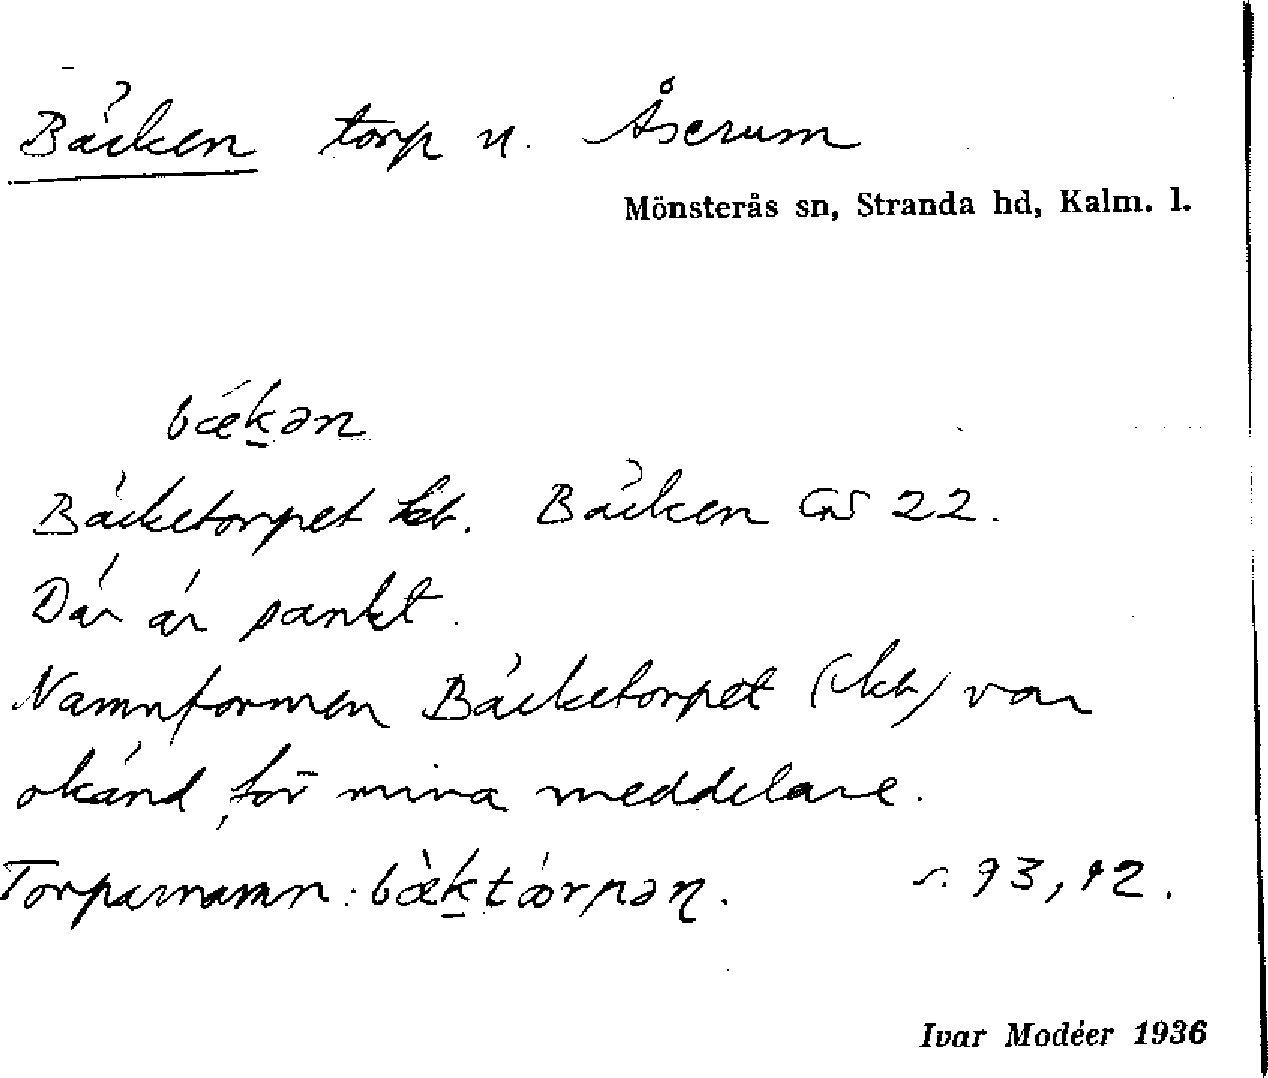 Bäcken torp u. Åserum
Mönsterås sn, Stranda hd, Kalm. l.
bǽk̲ən
Bäcketorpet kb. Bäcken GS 22.
Där är sankt.
Namnformen Bäcketorpet (kb) var
okänd för mina meddelare.
Torparnamn: bæ̀k̲tórpəɳ. s. 93, 92.
Ivar Modéer 1936